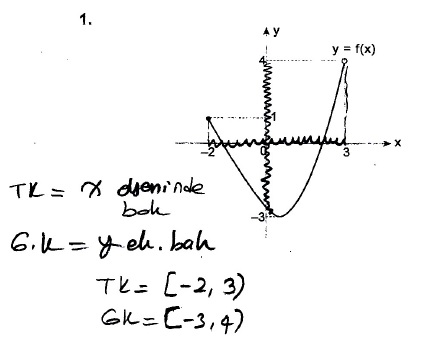 1.
y
y = f(x)
4
1
-2
0
3
x
-3
TK = x ekseninde
bak
G.K = y ek. bak
TK = [-2, 3)
GK = [-3, 4)